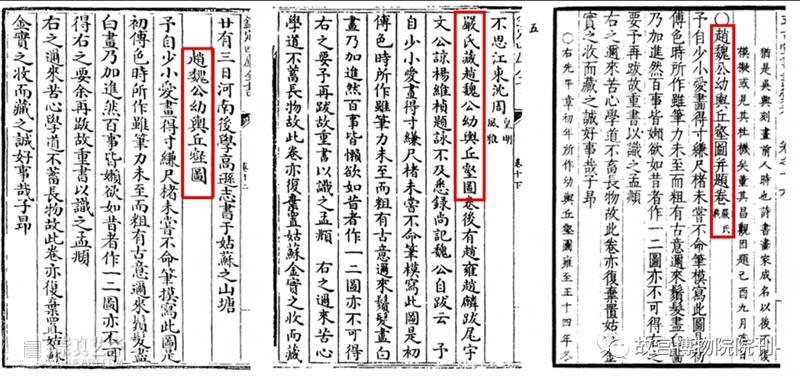 欽定四庫全書
卷十二
廿有三日河南後學高遜志書于姑蘇之山塘
趙魏公幼輿丘壑圖
予自少小愛畫得寸縑尺楮未嘗不命筆模寫此圖是
初傅色時所作雖筆力未至而粗有古意邇來鬚髮盡
白畫乃加進然百事皆嬾欲如昔者作一二圖亦不可
得右之要余再跋故重書以識之孟頫
右之邇來苦心學道不蓄長物故此卷亦復棄置姑蘇
金實之收而藏之誠好事哉子昂
五
卷十下
不思江東沈周 皇明風雅
嚴氏藏趙魏公幼輿丘壑圖卷後有趙雍趙麟跋尾宇
文公諒楊維楨題詠不及悉錄尚記魏公自跋云 予
自少小愛畫得寸縑尺楮未嘗不命筆模寫此圖是初
傅色時所作雖筆力未至而粗有古意邇來鬚髮盡白
畫乃加進然百事皆懶欲如昔者作一二圖亦不可得
右之要予再跋故重書以識之孟頫 右之邇來苦心
學道不蓄長物故此卷亦復棄置姑蘇金實之收而藏
猶是吳興刻畫前人時也詩書畫家成名以後復
模擬或見其杜機矣董其昌觀因題己酉九月
○趙魏公幼輿丘壑圖并題卷 嚴氏藏
予自少小愛畫得寸縑尺楮未嘗不命筆模寫此圖
傅色時所作雖筆力未至而粗有古意邇來鬚髮盡白
乃加進然百事皆嬾欲如昔者作一二圖亦不可得
要予再跋故重書以識之孟頫
右之邇來苦心學道不畜長物故此卷亦復棄置姑 金
實之收而藏之誠好事哉子昂
○右先平章初年所作幼輿丘壑圖雍至正十四年冬
故宫博物院院刊